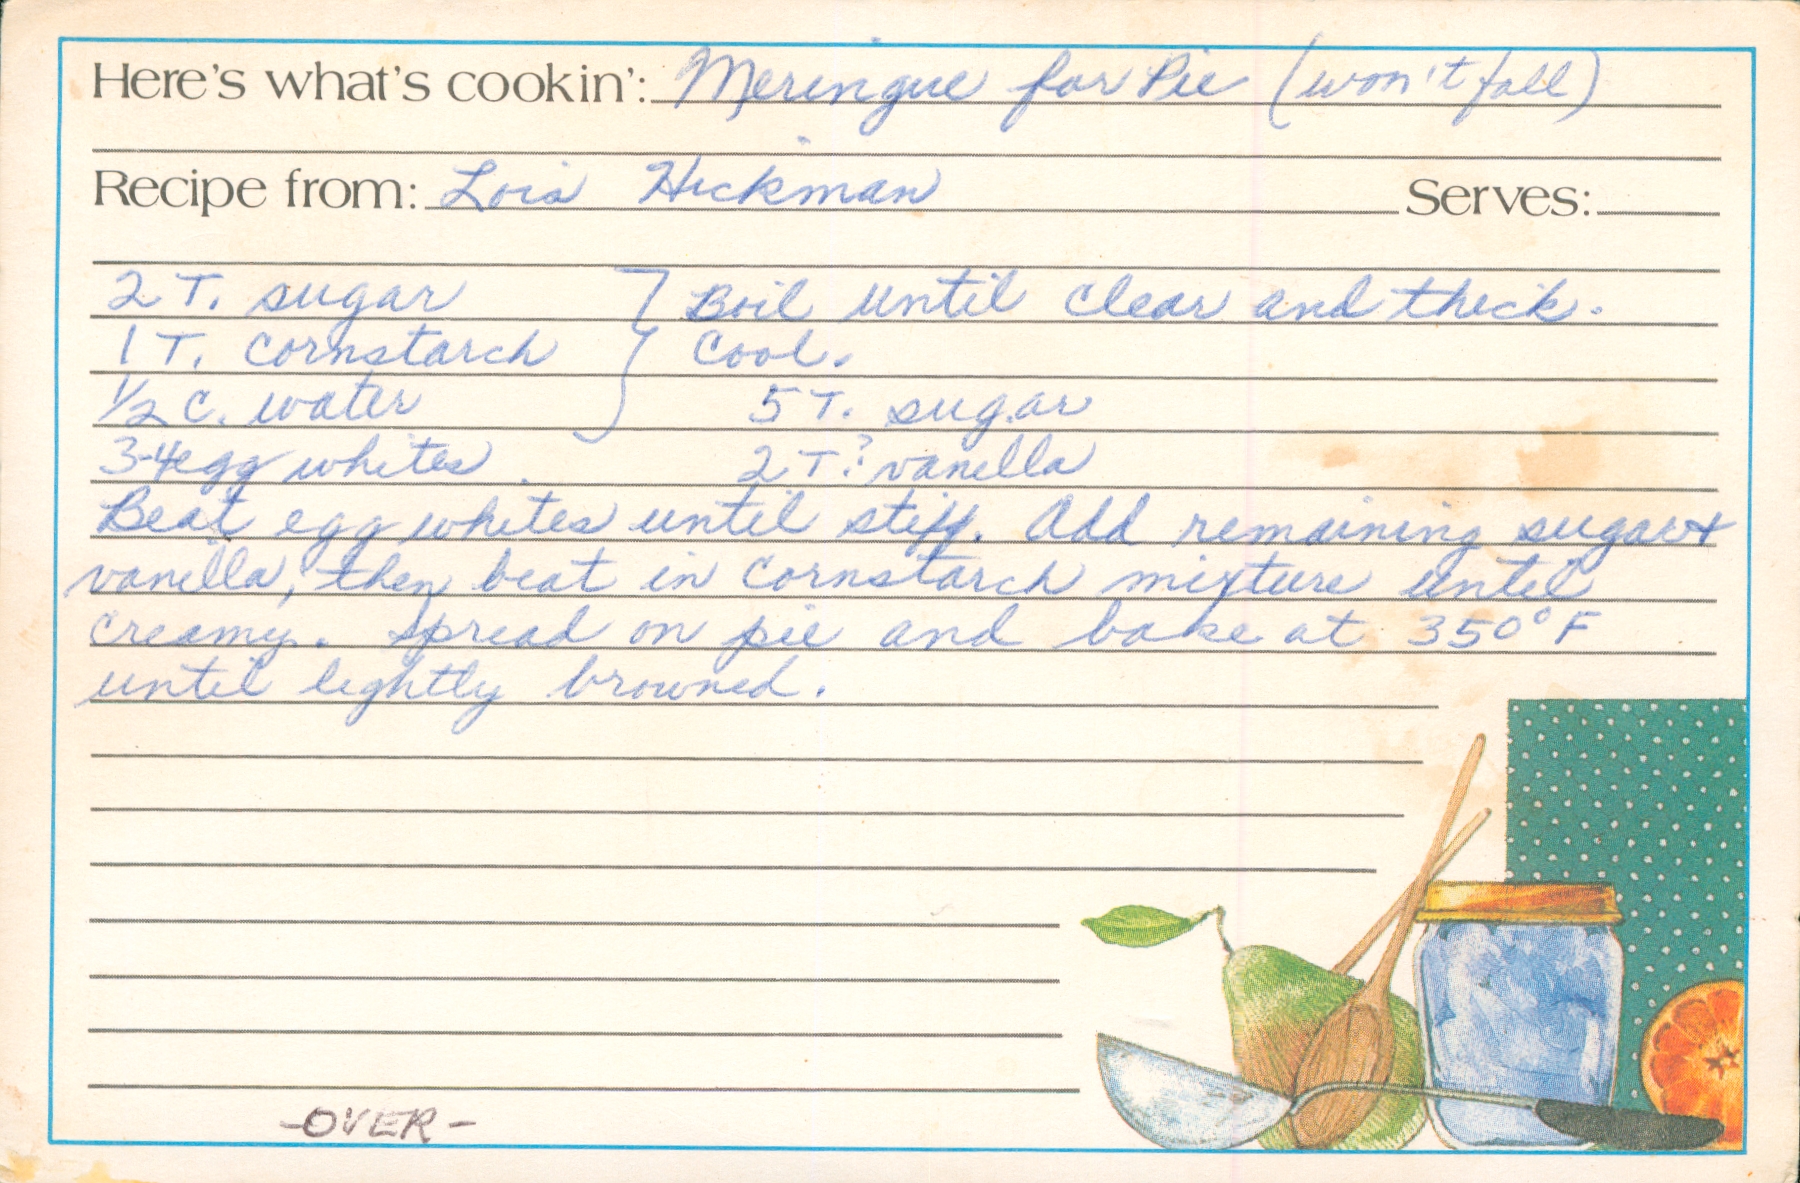 Here's what's cookin': Meringue for Pie (won't fall)
Recipe from: Lois Hickman Serves:
2 T. sugar } Boil until clear and thick.
1 T. cornstarch Cool.
1/2 c. water 5 T. sugar
3-4 egg whites 2 T.? vanilla
Beat egg whites until stiff. Add remaining sugar +
vanilla, then beat in cornstarch mixture until
creamy. Spread on pie and bake at 350°F
until lightly browned.
-OVER-